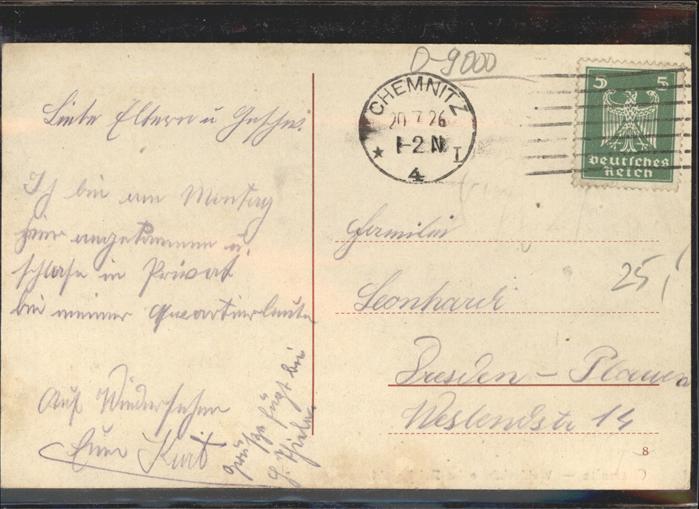 Liebe Eltern u Geschw.
Ich bin am Montag
hier angekommen u.
schlafe in Privat
bei meiner Quartiersleute
Auf Wiedersehen
Euer Kurt
Grüße fügt bei
D-9000
CHEMNITZ
20.7.26
1-2 N
* I
4
5 5
Deutsches
Reich
Familie
Leonhardi
Dresden - Plauen
Westendstr 14
25,-
8